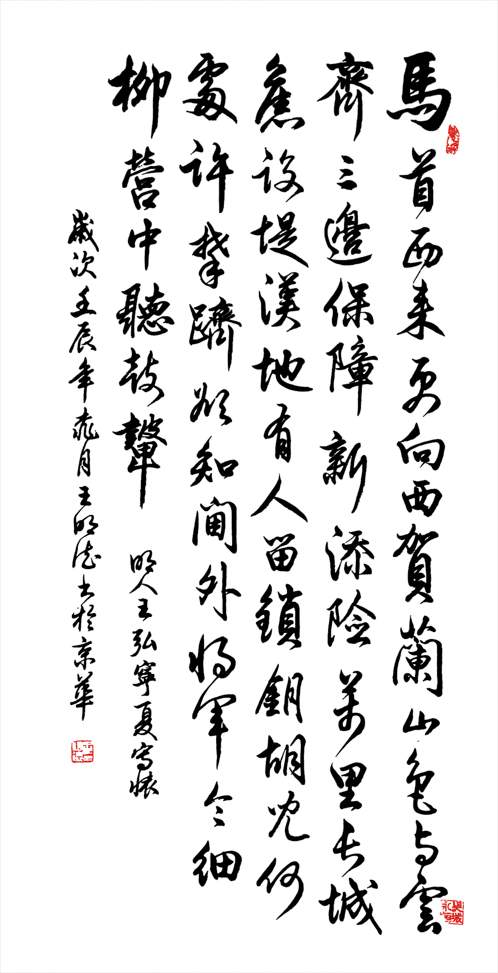 馬首西来更向西賀蘭山色与雲
齊三邊保障新添險萬里长城
舊设堤漢地有人留鎖鑰胡兒何
處许攀躋欲知閫外将军令細
柳營中聽鼓鼙 明人王弘寧夏寫懷
歲次壬辰年桃月王明德书於京華